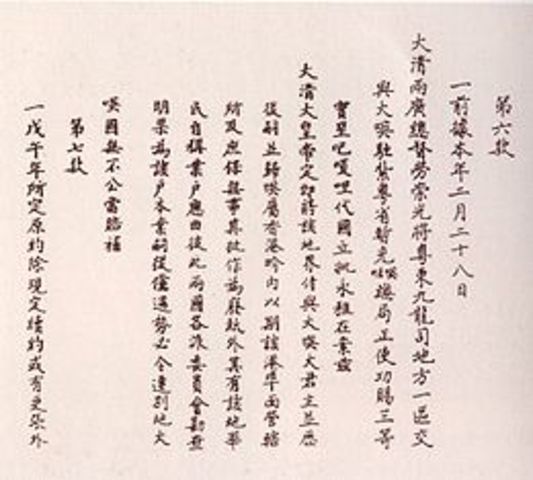 第六款
一前據本年二月二十八日
大清兩廣總督勞崇光將粵東九龍司地方一區交
與大㗆駐紮粵省暫充㗆總局正使功賜三等
寶星巴夏里代國立批永租在案茲
大清大皇帝定即將該地界付與大㗆大君主並歷
後嗣並歸㗆屬香港界內以期該港埠面管轄
所及庶保無事其批作為廢紙外其有該地華
民自稱業戶應由彼此兩國各派委員會勘查
明果為該戶本業嗣後倘遇勢必令遷別地大
㗆國無不公當賠補
第七款
一戊午年所定原約除現定續約或有更張外